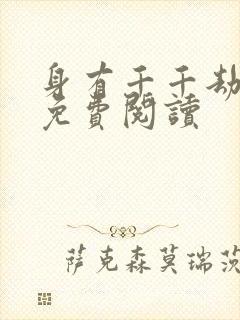 身有千千劫
免費閱讀
萨克森莫瑞茨